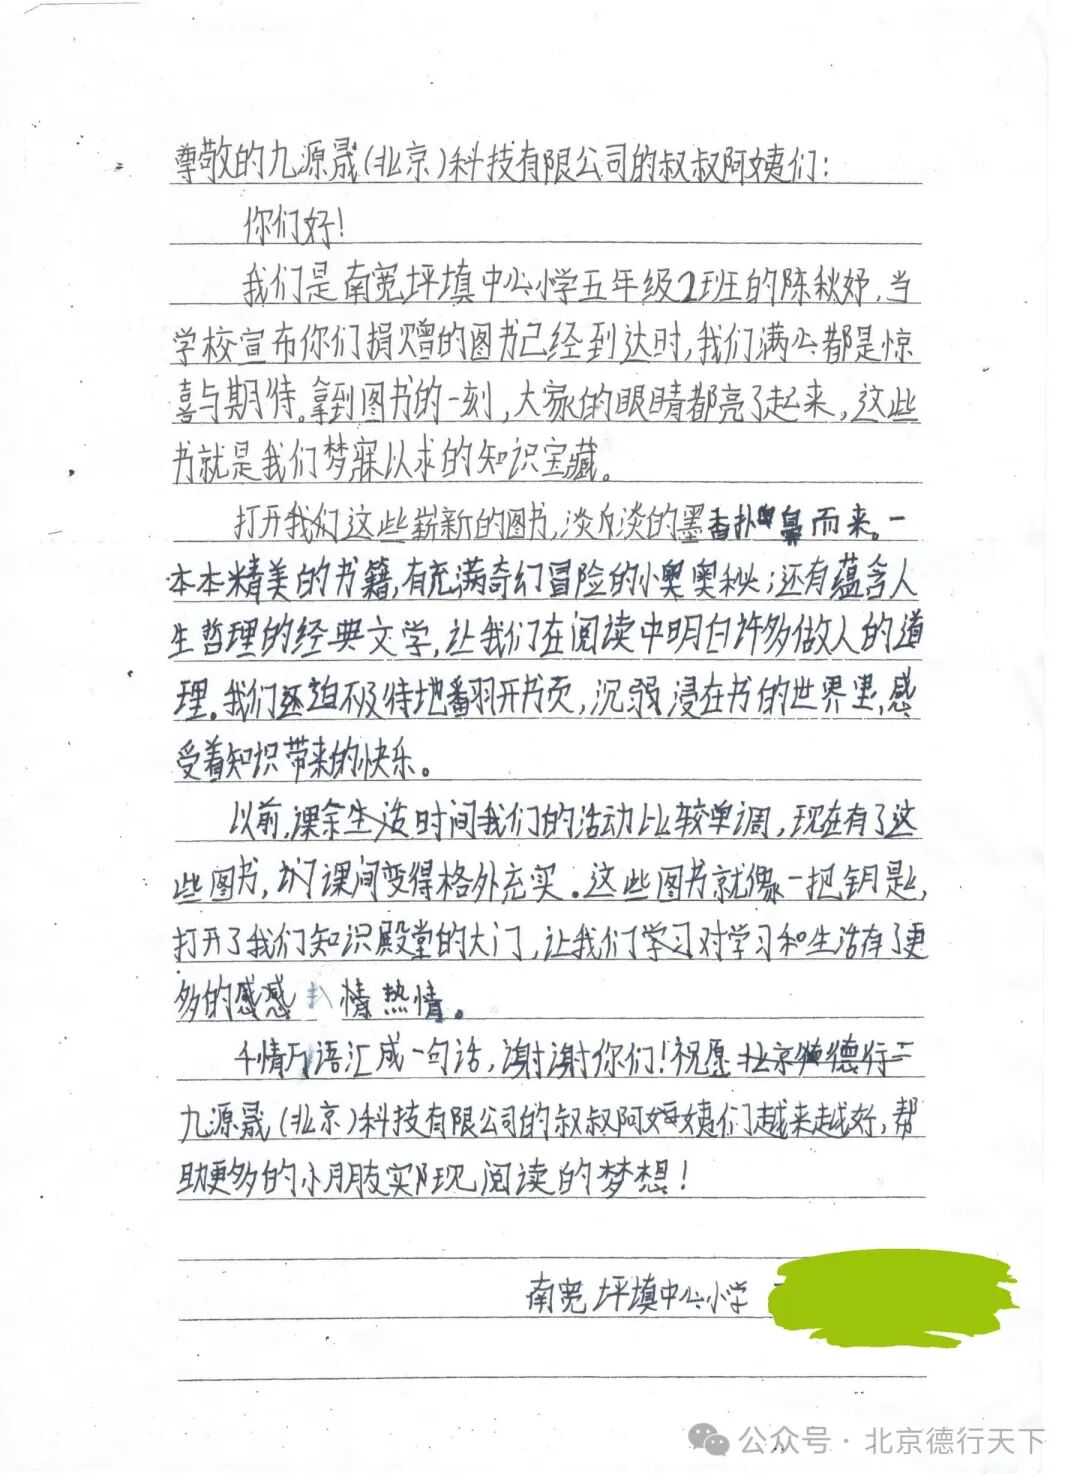 尊敬的九源晟(北京)科技有限公司的叔叔阿姨们:
你们好!
我们是南宽坪填中心小学五年级2班的陈秋妤,当
学校宣布你们捐赠的图书已经到达时,我们满心都是惊
喜与期待。拿到图书的一刻,大家的眼睛都亮了起来,这些
书就是我们梦寐以求的知识宝藏。
打开我们这些崭新的图书,淡淡的墨香扑鼻而来。一
本本精美的书籍,有充满奇幻冒险的小奥秘;还有蕴含人
生哲理的经典文学,让我们在阅读中明白许多做人的道
理。我们迫不及待地翻开书页,沉浸在书的世界里,感
受着知识带来的快乐。
以前,课余时间我们的活动比较单调,现在有了这
些图书,课间变得格外充实。这些图书就像一把钥匙,
打开了我们知识殿堂的大门,让我们学习对学习和生活有了更
多的感情热情。
千情万语汇成一句话,谢谢你们!祝愿
九源晟(北京)科技有限公司的叔叔阿姨们越来越好,帮
助更多的小朋友实现阅读的梦想!
南宽坪填中心小学
公众号·北京德行天下